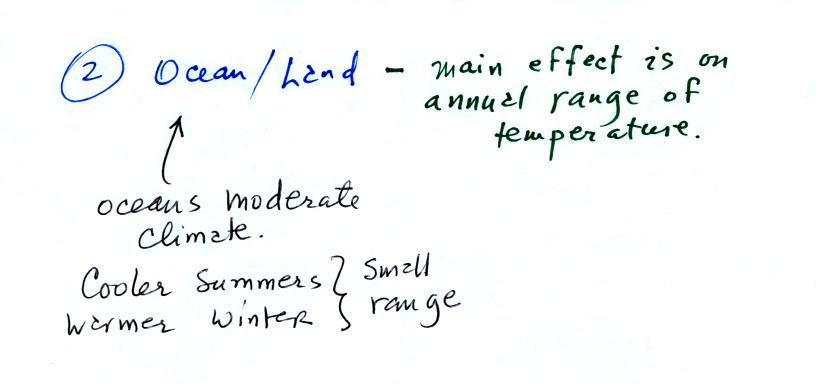 2 Ocean/Land - main effect is on
annual range of
temperature.
oceans moderate
climate.
Cooler Summers } Small
Warmer Winter } range